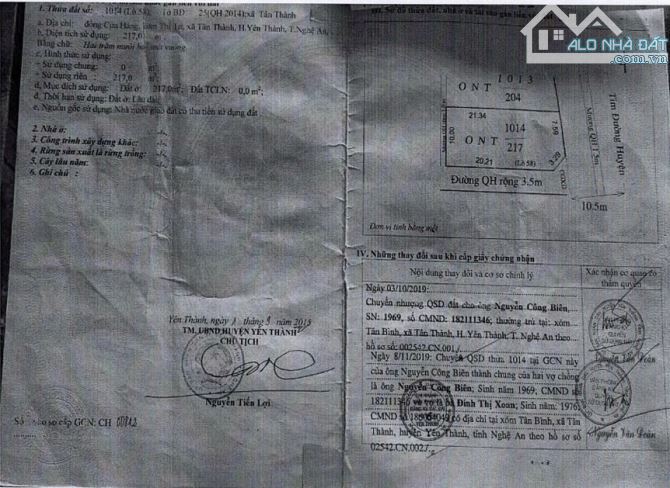 1. Thửa đất số: 1014 (Lô 58) Tờ BĐ 25(QH 2014):xã Tân Thành
a, Địa chỉ: đồng Cửa Hàng, xã Tân Thành, H.Yên Thành, T.Nghệ An,
b, Diện tích sử dụng: 217,0
Bằng chữ: Hai trăm mười bảy mét vuông
c, Hình thức sử dụng:
- Sử dụng chung: 0 m²
- Sử dụng riêng : 217,0 m²
d, Mục đích sử dụng: Đất ở: 217,0m² Đất TCLN: 0,0 m²;
đ, Thời hạn sử dụng: Đất ở: Lâu dài;
e, Nguồn gốc sử dụng: Nhà nước giao đất có thu tiền sử dụng đất
2. Nhà ở:
3. Công trình xây dựng khác:
4. Rừng sản xuất là rừng trồng:
5. Cây lâu năm:
6. Ghi chú :
Yên Thành, ngày tháng năm 2015
TM. UBND HUYỆN YÊN THÀNH
CHỦ TỊCH
Nguyễn Tiến Lợi
Số vào sổ cấp GCN: CH
ALO NHÀ ĐẤT
.com.vn
ONT
1013
204
21.34
ONT
1014
217
10.00
7.59
20.21
(Lô 58)
3.29
Đường QH rộng 3.5m
Mương QH 1.5m
Tim Đường Huyện
10.5m
Đơn vị tính bằng mét
IV. Những thay đổi sau khi cấp giấy chứng nhận
Nội dung thay đổi và cơ sở pháp lý
Xác nhận của cơ quan có thẩm quyền
Ngày 03/10/2019:
Chuyển nhượng QSD đất cho ông Nguyễn Công Biên,
SN: 1969, số CMND: 182111346; thường trú tại: xóm
Tân Bình, xã Tân Thành, H. Yên Thành, T. Nghệ An theo
hồ sơ số: 002542.CN.001./
Nguyễn Văn Đoàn
Ngày 8/11/2019: Chuyển QSD thửa 1014 tại GCN này
của ông Nguyễn Công Biên thành chung của hai vợ chồng
là ông Nguyễn Công Biên; Sinh năm 1969, CMND số
182111346 và vợ là bà Đinh Thị Xoan; Sinh năm: 1976,
CMND số có địa chỉ tại xóm Tân Bình, xã Tân
Thành, huyện Yên Thành, tỉnh Nghệ An theo hồ sơ số
02542.CN.002./.
Nguyễn Văn Đoàn